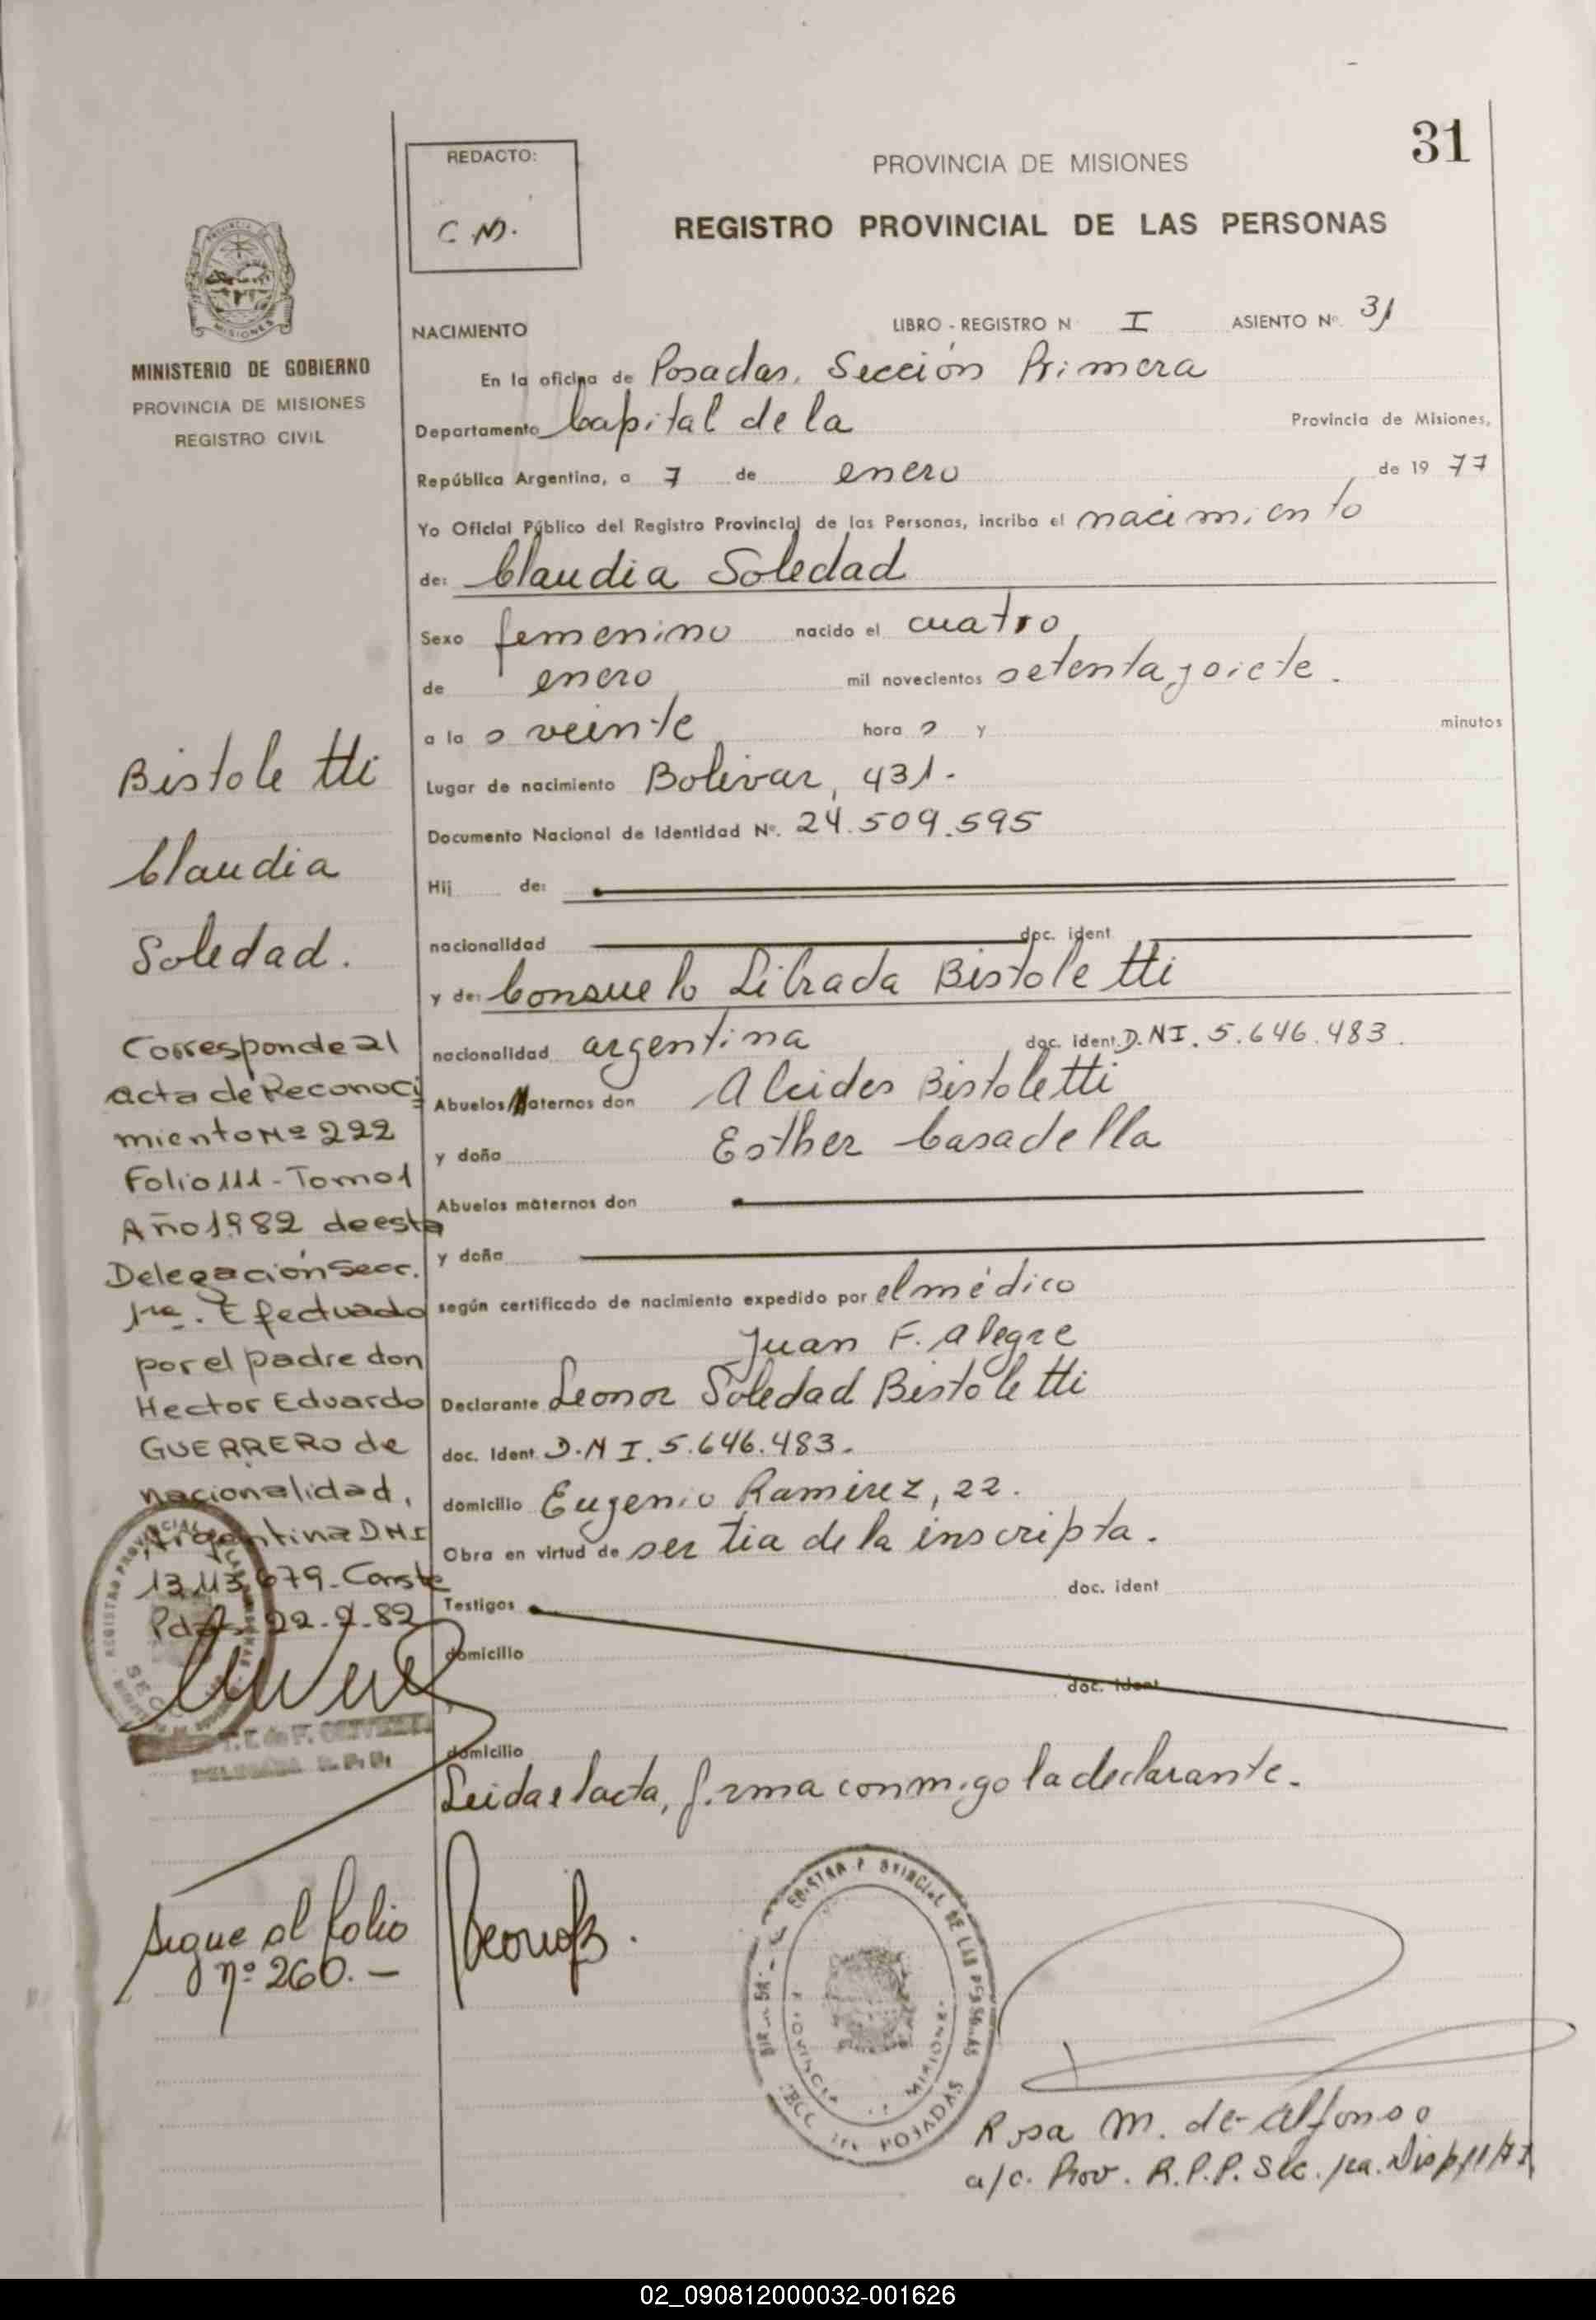 31
REDACTO:
C.M.
PROVINCIA DE MISIONES
REGISTRO PROVINCIAL DE LAS PERSONAS
MISIONES
MINISTERIO DE GOBIERNO
PROVINCIA DE MISIONES
REGISTRO CIVIL
NACIMIENTO LIBRO - REGISTRO N I ASIENTO Nº. 31
En la oficina de Posadas, Sección Primera
Departamento Capital de la Provincia de Misiones,
República Argentina, a 7 de enero de 19 77
Yo Oficial Público del Registro Provincial de las Personas, incribo el nacimiento
de: Claudia Soledad
Sexo femenino nacido el cuatro
de enero mil novecientos setenta y siete.
a la s veinte hora s y minutos
Lugar de nacimiento Bolivar, 431.-
Documento Nacional de Identidad Nº. 24.509.595
Hij de:
nacionalidad doc. ident
y de: Consuelo Librada Bistoletti
nacionalidad argentina doc. ident. D.NI. 5.646.483.
Abuelos Maternos don Alcides Bistoletti
y doña Esther Casadella
Abuelos maternos don
y doña
según certificado de nacimiento expedido por el médico
Juan F. Alegre
Declarante Leonor Soledad Bistoletti
doc. Ident. D.N I. 5.646.483.
domicilio Eugenio Ramirez, 22.
Obra en virtud de ser tia de la inscripta.
Testigos doc. ident
domicilio
doc. ident
domicilio
Leida el acta, firma conmigo la declarante.-
Bistoletti
Claudia
Soledad.
Corresponde al
acta de Reconoci
miento Nº 222
Folio 111 - Tomo 1
Año 1982 de esta
Delegación Secc.
1ra. Efectuado
por el padre don
Hector Eduardo
GUERRERO de
nacionalidad,
Argentina D.N.I
13.113.679. Conste
Pdas 22-2-82
sigue al folio
nº 260.-
SECC POSADAS
Rosa M. de Alfonso
a/c. Prov. R.P.P. Sec. 1ra.
02_090812000032-001626